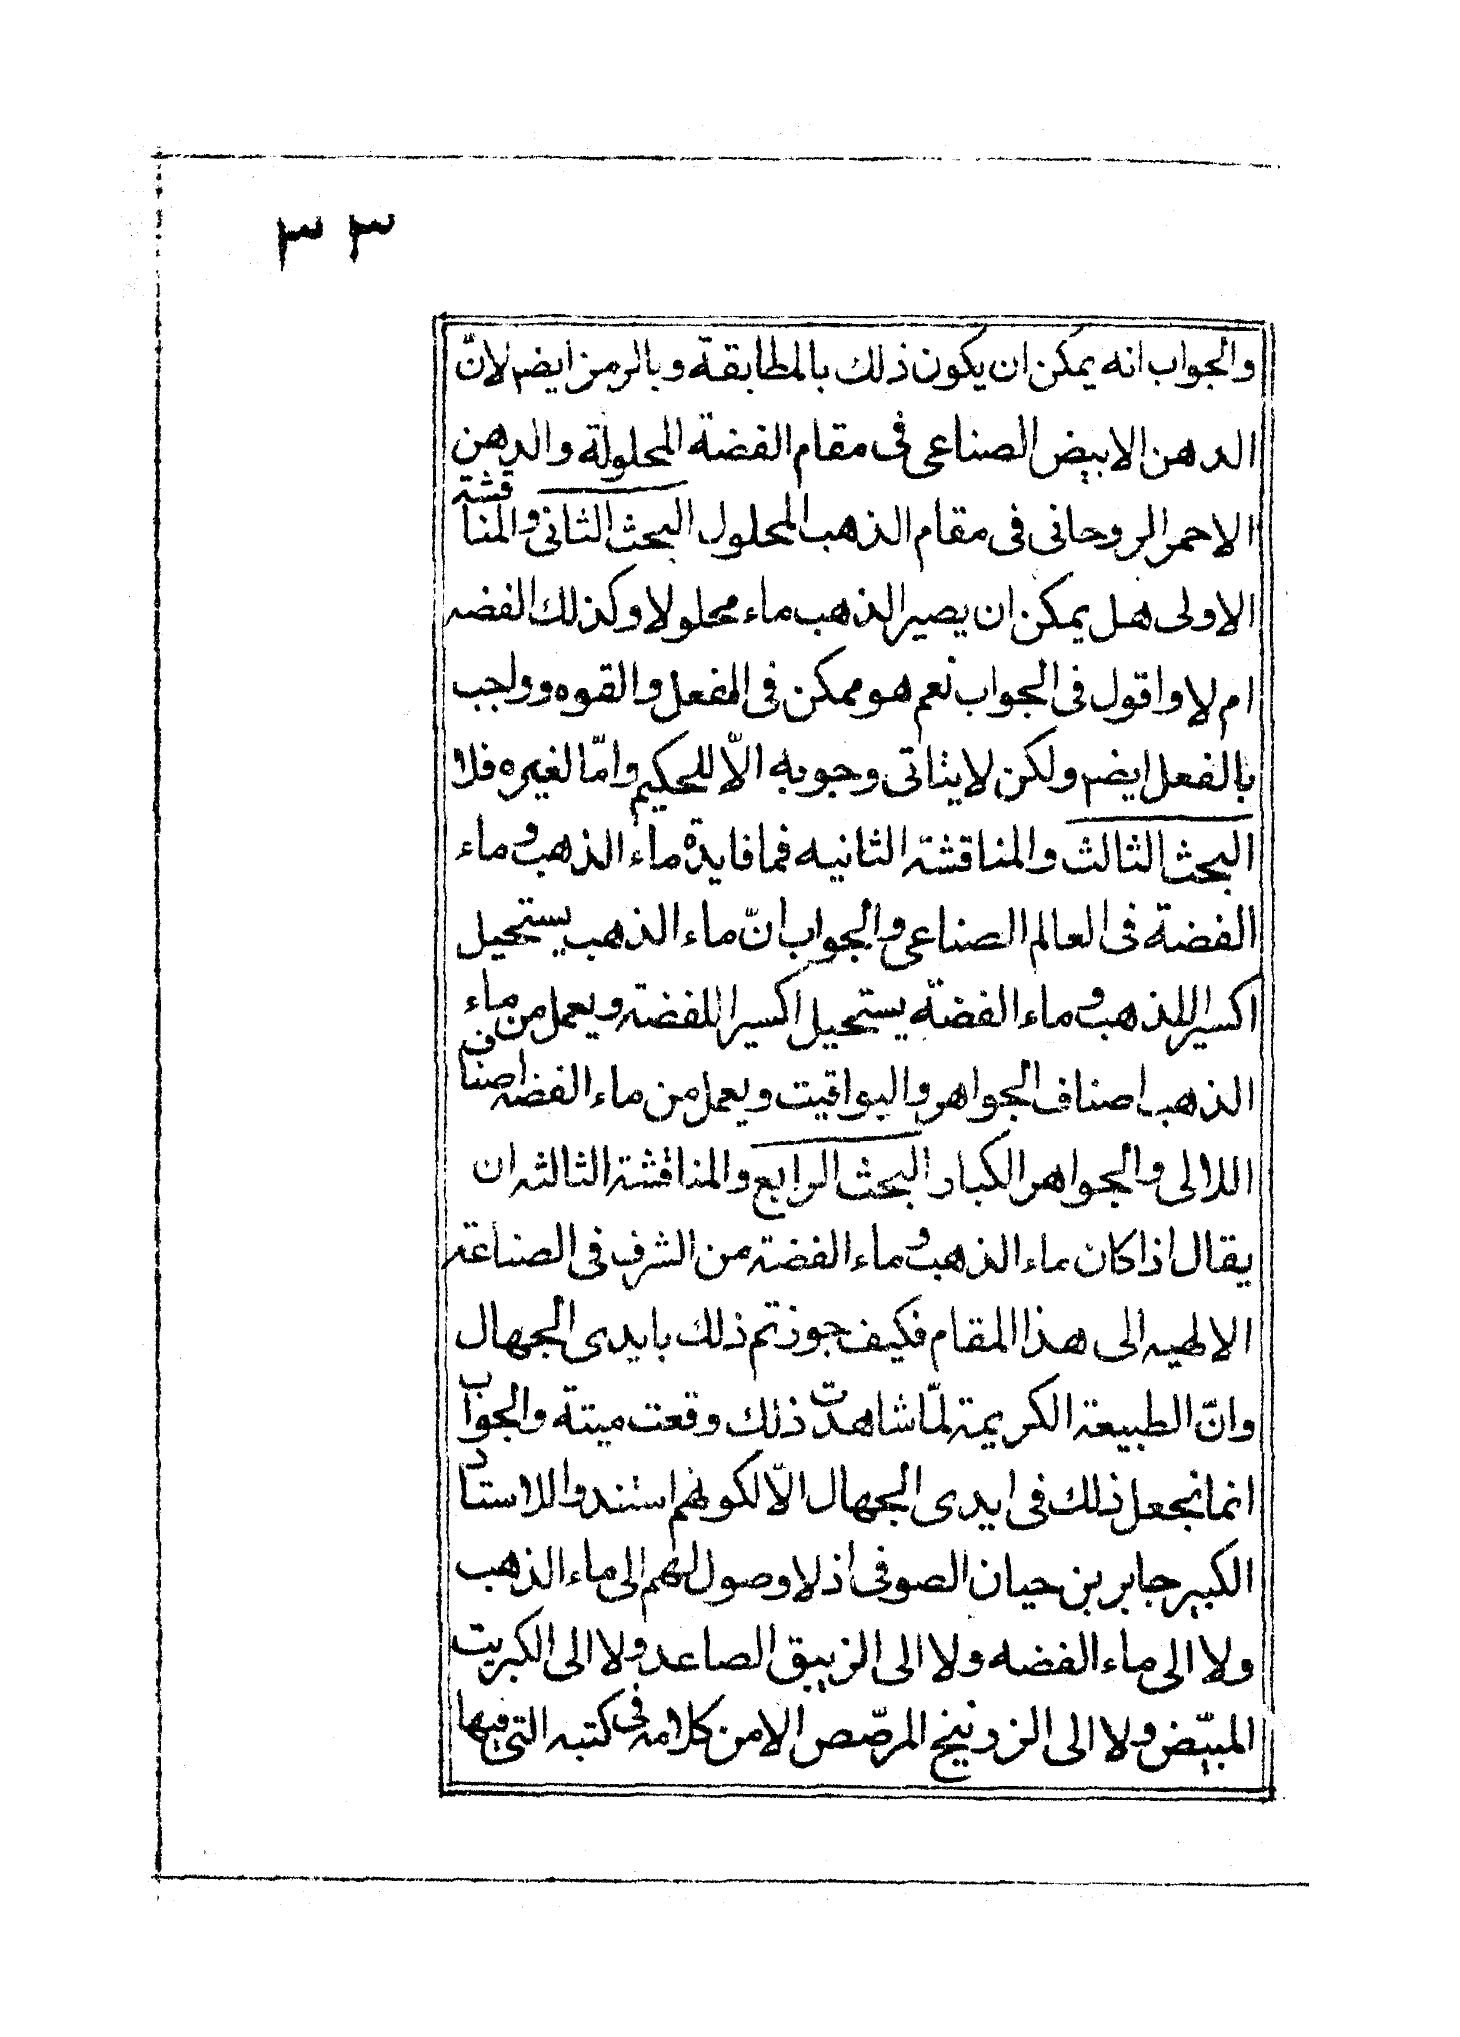 ٣٣
والجواب انه يمكن ان يكون ذلك بالمطابقة وبالرمز ايضم لانّ
الدهن الابيض الصناعى فى مقام الفضة المحلولة والدهن
الاحمر الروحانى فى مقام الذهب المحلول البحث الثانى والمناقشة
الاولى هل يمكن ان يصير الذهب ماء محلولا وكذلك الفضه
ام لا واقول فى الجواب نعم هو ممكن فى المفعل والقوه وواجب
بالفعل ايضم ولكن لايتاتى وجوبه الاّ للحكيم وامّا لغيره فلا
البحث الثالث والمناقشة الثانيه فما فايدة ماء الذهب وماء
الفضة فى العالم الصناعى والجواب انّ ماء الذهب يستحيل
اكسيرا للذهب وماء الفضة يستحيل اكسيرا للفضة ويعمل من ماء
الذهب اصناف الجواهر واليواقيت ويعمل من ماء الفضه اصناف
اللالى والجواهر الكبار البحث الرابع والمناقشة الثالثه ان
يقال اذا كان ماء الذهب وماء الفضة من الشرف فى الصناعة
الالهيه الى هذا المقام فكيف جوزتم ذلك بايدى الجهال
وانّ الطبيعة الكريمة لمّا شاهدت ذلك وقعت ميتة والجواب
انما نجعل ذلك فى ايدى الجهال الاّ لكونهم استندوا للاستاد
الكبير جابر بن حيان الصوفى اذ لا وصول لهم الى ماء الذهب
ولا الى ماء الفضه ولا الى الزيبق الصاعد ولا الى الكبريت
المبيّض ولا الى الزرنيخ المرصّص الا من كلامه فى كتبه التى فيها